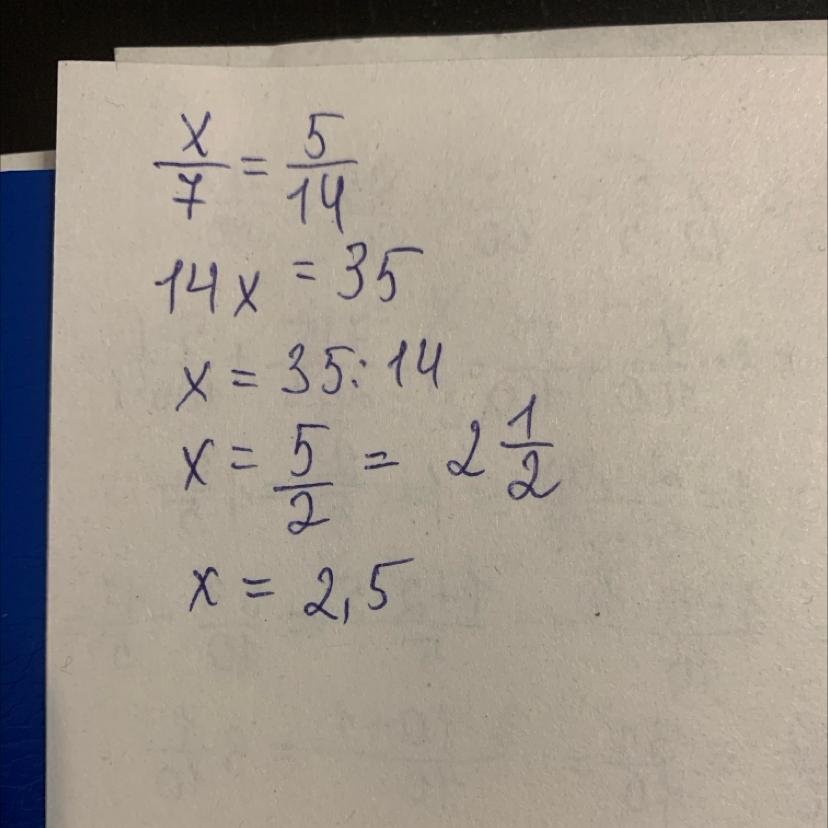 x/7 = 5/14
14x = 35
x = 35:14
x = 5/2 = 2 1/2
x = 2,5